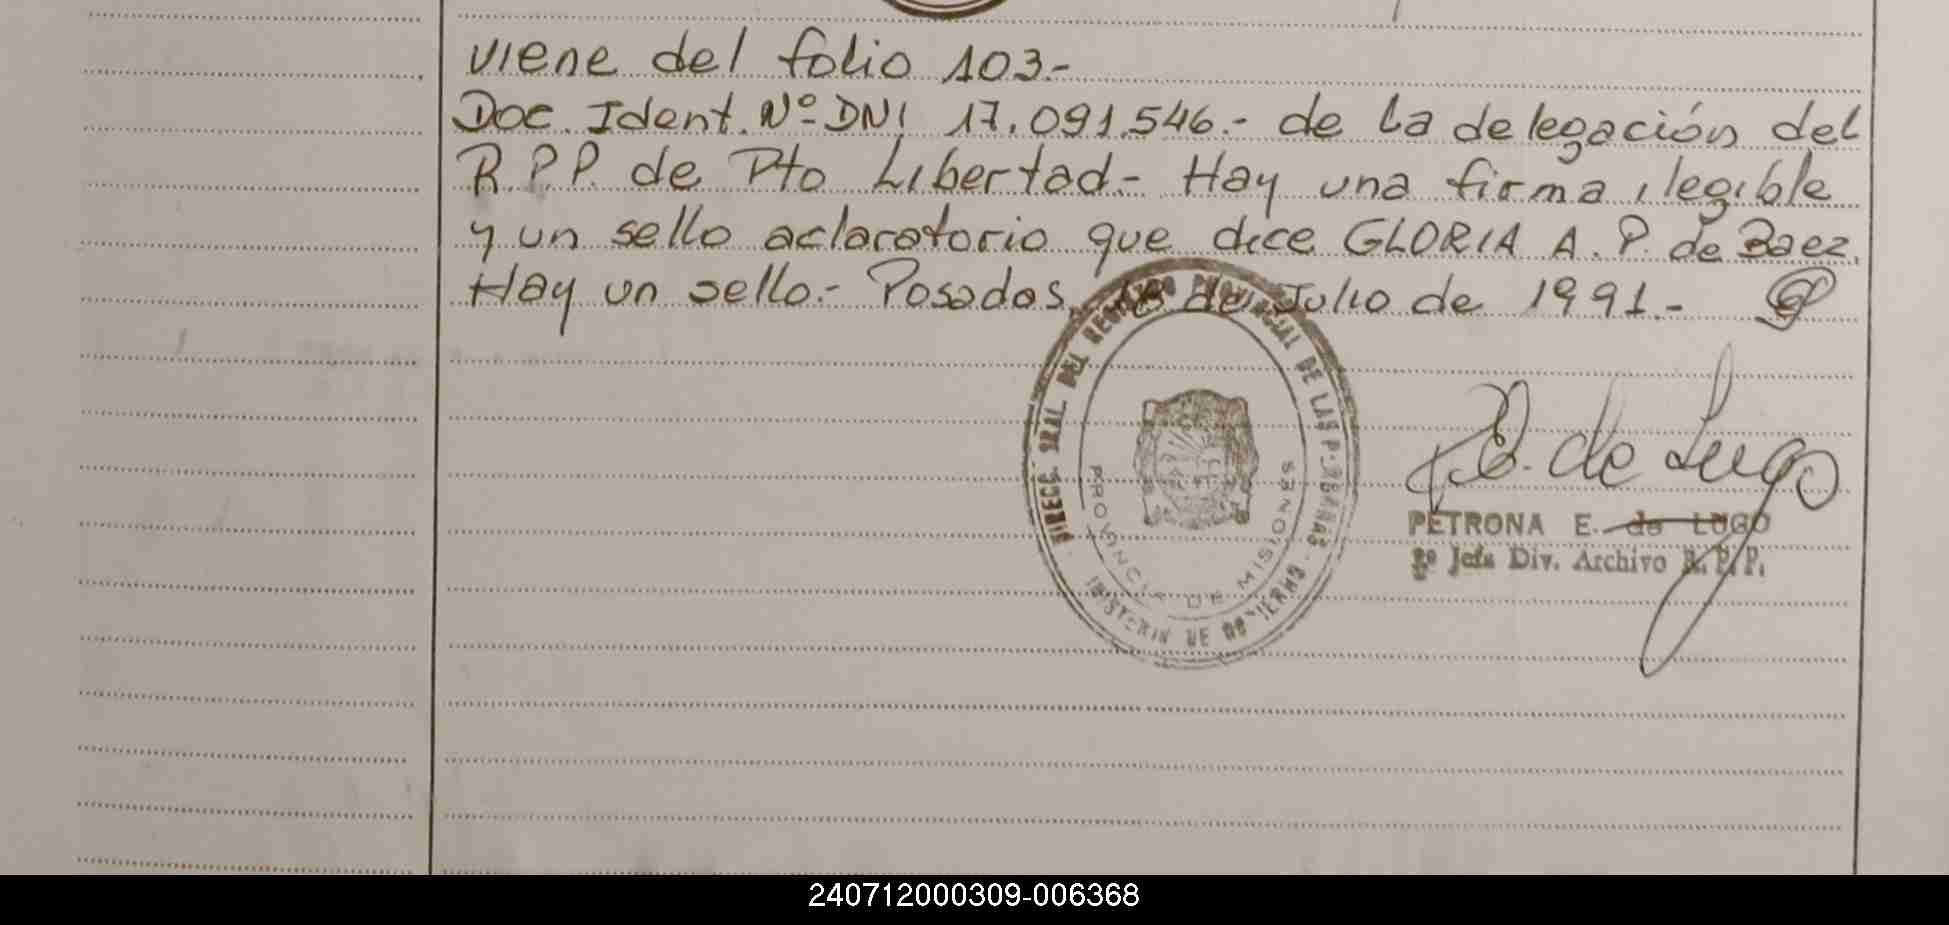 viene del folio 103.-
Doc. Ident. Nº DNI 17.091.546.- de la delegación del
R.P.P. de Pto Libertad.- Hay una firma ilegible
y un sello aclaratorio que dice GLORIA A. P. de Baez.
Hay un sello.- Posadas, 18 de Julio de 1991.-
DIRECC. GRAL. DEL REGISTRO PROVINCIAL DE LAS PERSONAS
PROVINCIA DE MISIONES
MINISTERIO DE GOBIERNO
E. de Lugo
PETRONA E. de LUGO
2º Jefa Div. Archivo R.P.P.
240712000309-006368